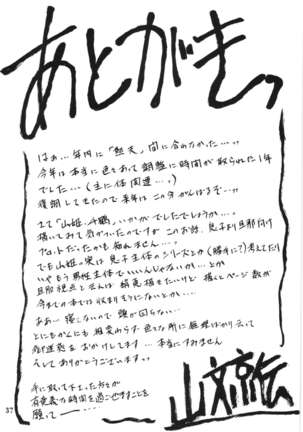 あとがきっ
はぁ…年内に「熱天」間に合わなかった…。
今年は本当に色々あって　に時間が取られた1年
でした…(主に　関連…。)
復調してきたので来年はこの分がんばるぞ…。
さて「山姫の　」いかがでしたでしょうか…。
描いてみて気がついたのですが このお話、息子より旦那向け
プロットだったかも知れません…。
でも山姫の実は息子主体のシリーズとか(勝手に?)考えてたり
いやもう男性主体でいいんじゃないか…とか
旦那視点とせんは 描きたいけど 描くとページ数が
今までの本では収まりそうにないとか…。
ああ…寝しないので頭が回らない…。
とにもかくにも相変わらず色々な所に無理ばかり言って
御迷惑をおかけしてます…本当にすみません
そしてありがとうございます。
手に取って下さった方々が
有意義な時間を過ごせますことを
願って――
37
山文京伝